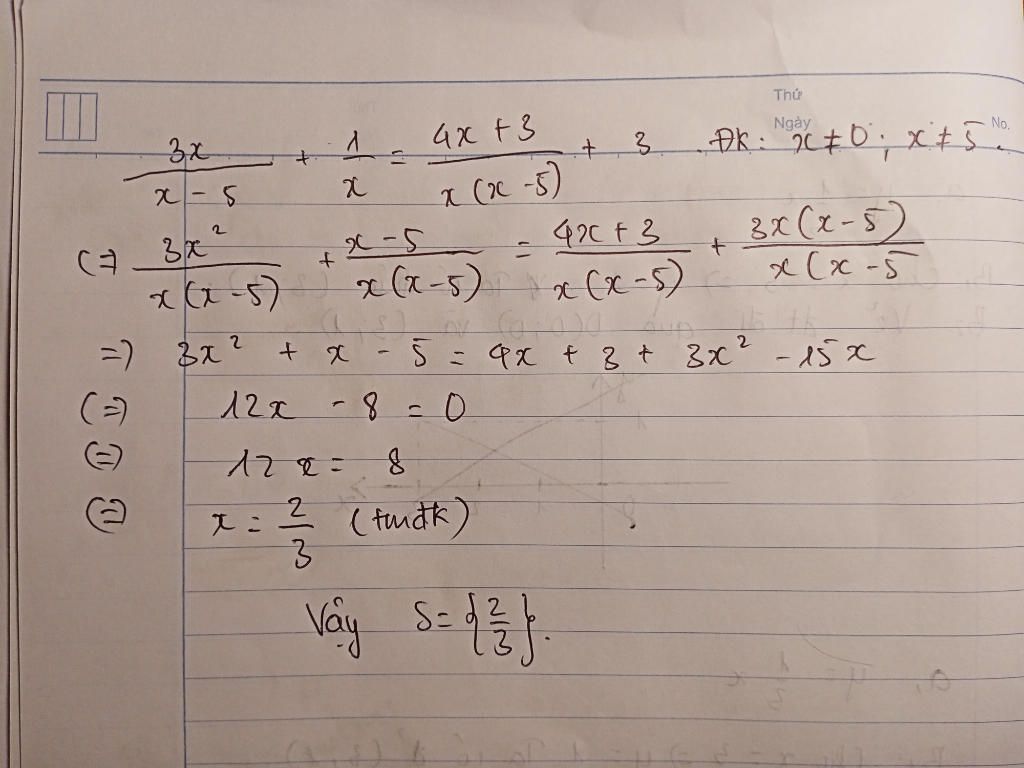 Thứ
Ngày No.
3x/(x - 5) + 1/x = (4x + 3)/(x(x - 5)) + 3 . ĐK: x ≠ 0 ; x ≠ 5 .
(=) 3x²/(x(x - 5)) + (x - 5)/(x(x - 5)) = (4x + 3)/(x(x - 5)) + 3x(x - 5)/(x(x - 5
=) 3x² + x - 5 = 4x + 3 + 3x² - 15x
(=) 12x - 8 = 0
(=) 12x = 8
(=) x = 2/3 (tmđk)
Vậy S = {2/3}.